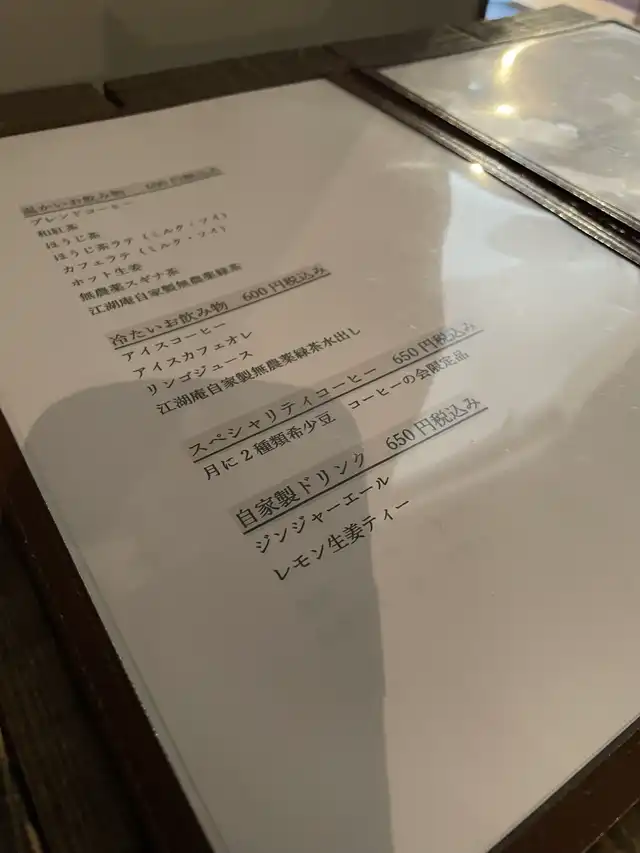 温かいお飲み物　600円税込み
ブレンドコーヒー
和紅茶
ほうじ茶
ほうじ茶ラテ（ミルク・ソイ）
カフェラテ（ミルク・ソイ）
ホット生姜
無農薬スギナ茶
江湖庵自家製無農薬緑茶
冷たいお飲み物　600円税込み
アイスコーヒー
アイスカフェオレ
リンゴジュース
江湖庵自家製無農薬緑茶水出し
スペシャリティコーヒー　650円税込み
月に２種類希少豆　コーヒーの会限定品
自家製ドリンク　650円税込み
ジンジャーエール
レモン生姜ティー